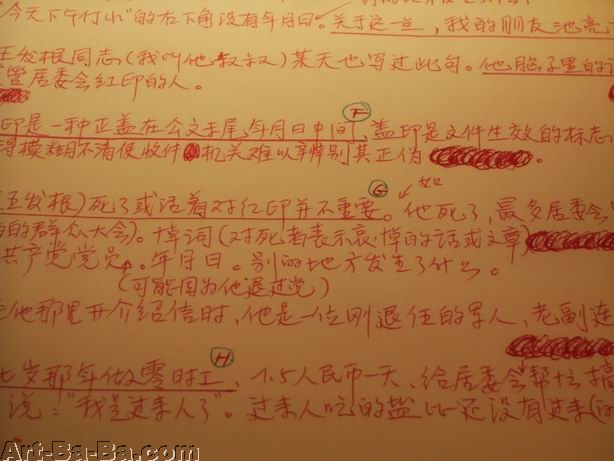 今天下午付小”的右下角没有年月日。关于这一点，我的朋友池亮
王发根同志(我叫他叔叔)某天也写过此句。他脑子里的
管居委会红印的人。
F
印是一种正盖在公文末尾年月日中间，盖印是文件生效的标志
得模糊不清使收件机关难以辨别其正伪。
G 如
王发根)死了或活着对红印并不重要。他死了，最多居委会
的群众大会)。悼词(对死者表示哀悼的话或文章)
共产党党员。年月日。别的地方发生了什么。
(可能因为他退过党)
他那里开介绍信时，他是一位刚退伍的军人，老副连
H
七岁那年做零时工、1.5人民币一天、给居委会帮忙搞
说：“我是过来人了”。过来人吃的盐比还没有过来
Art-Ba-Ba.com
Art-Ba-Ba.com